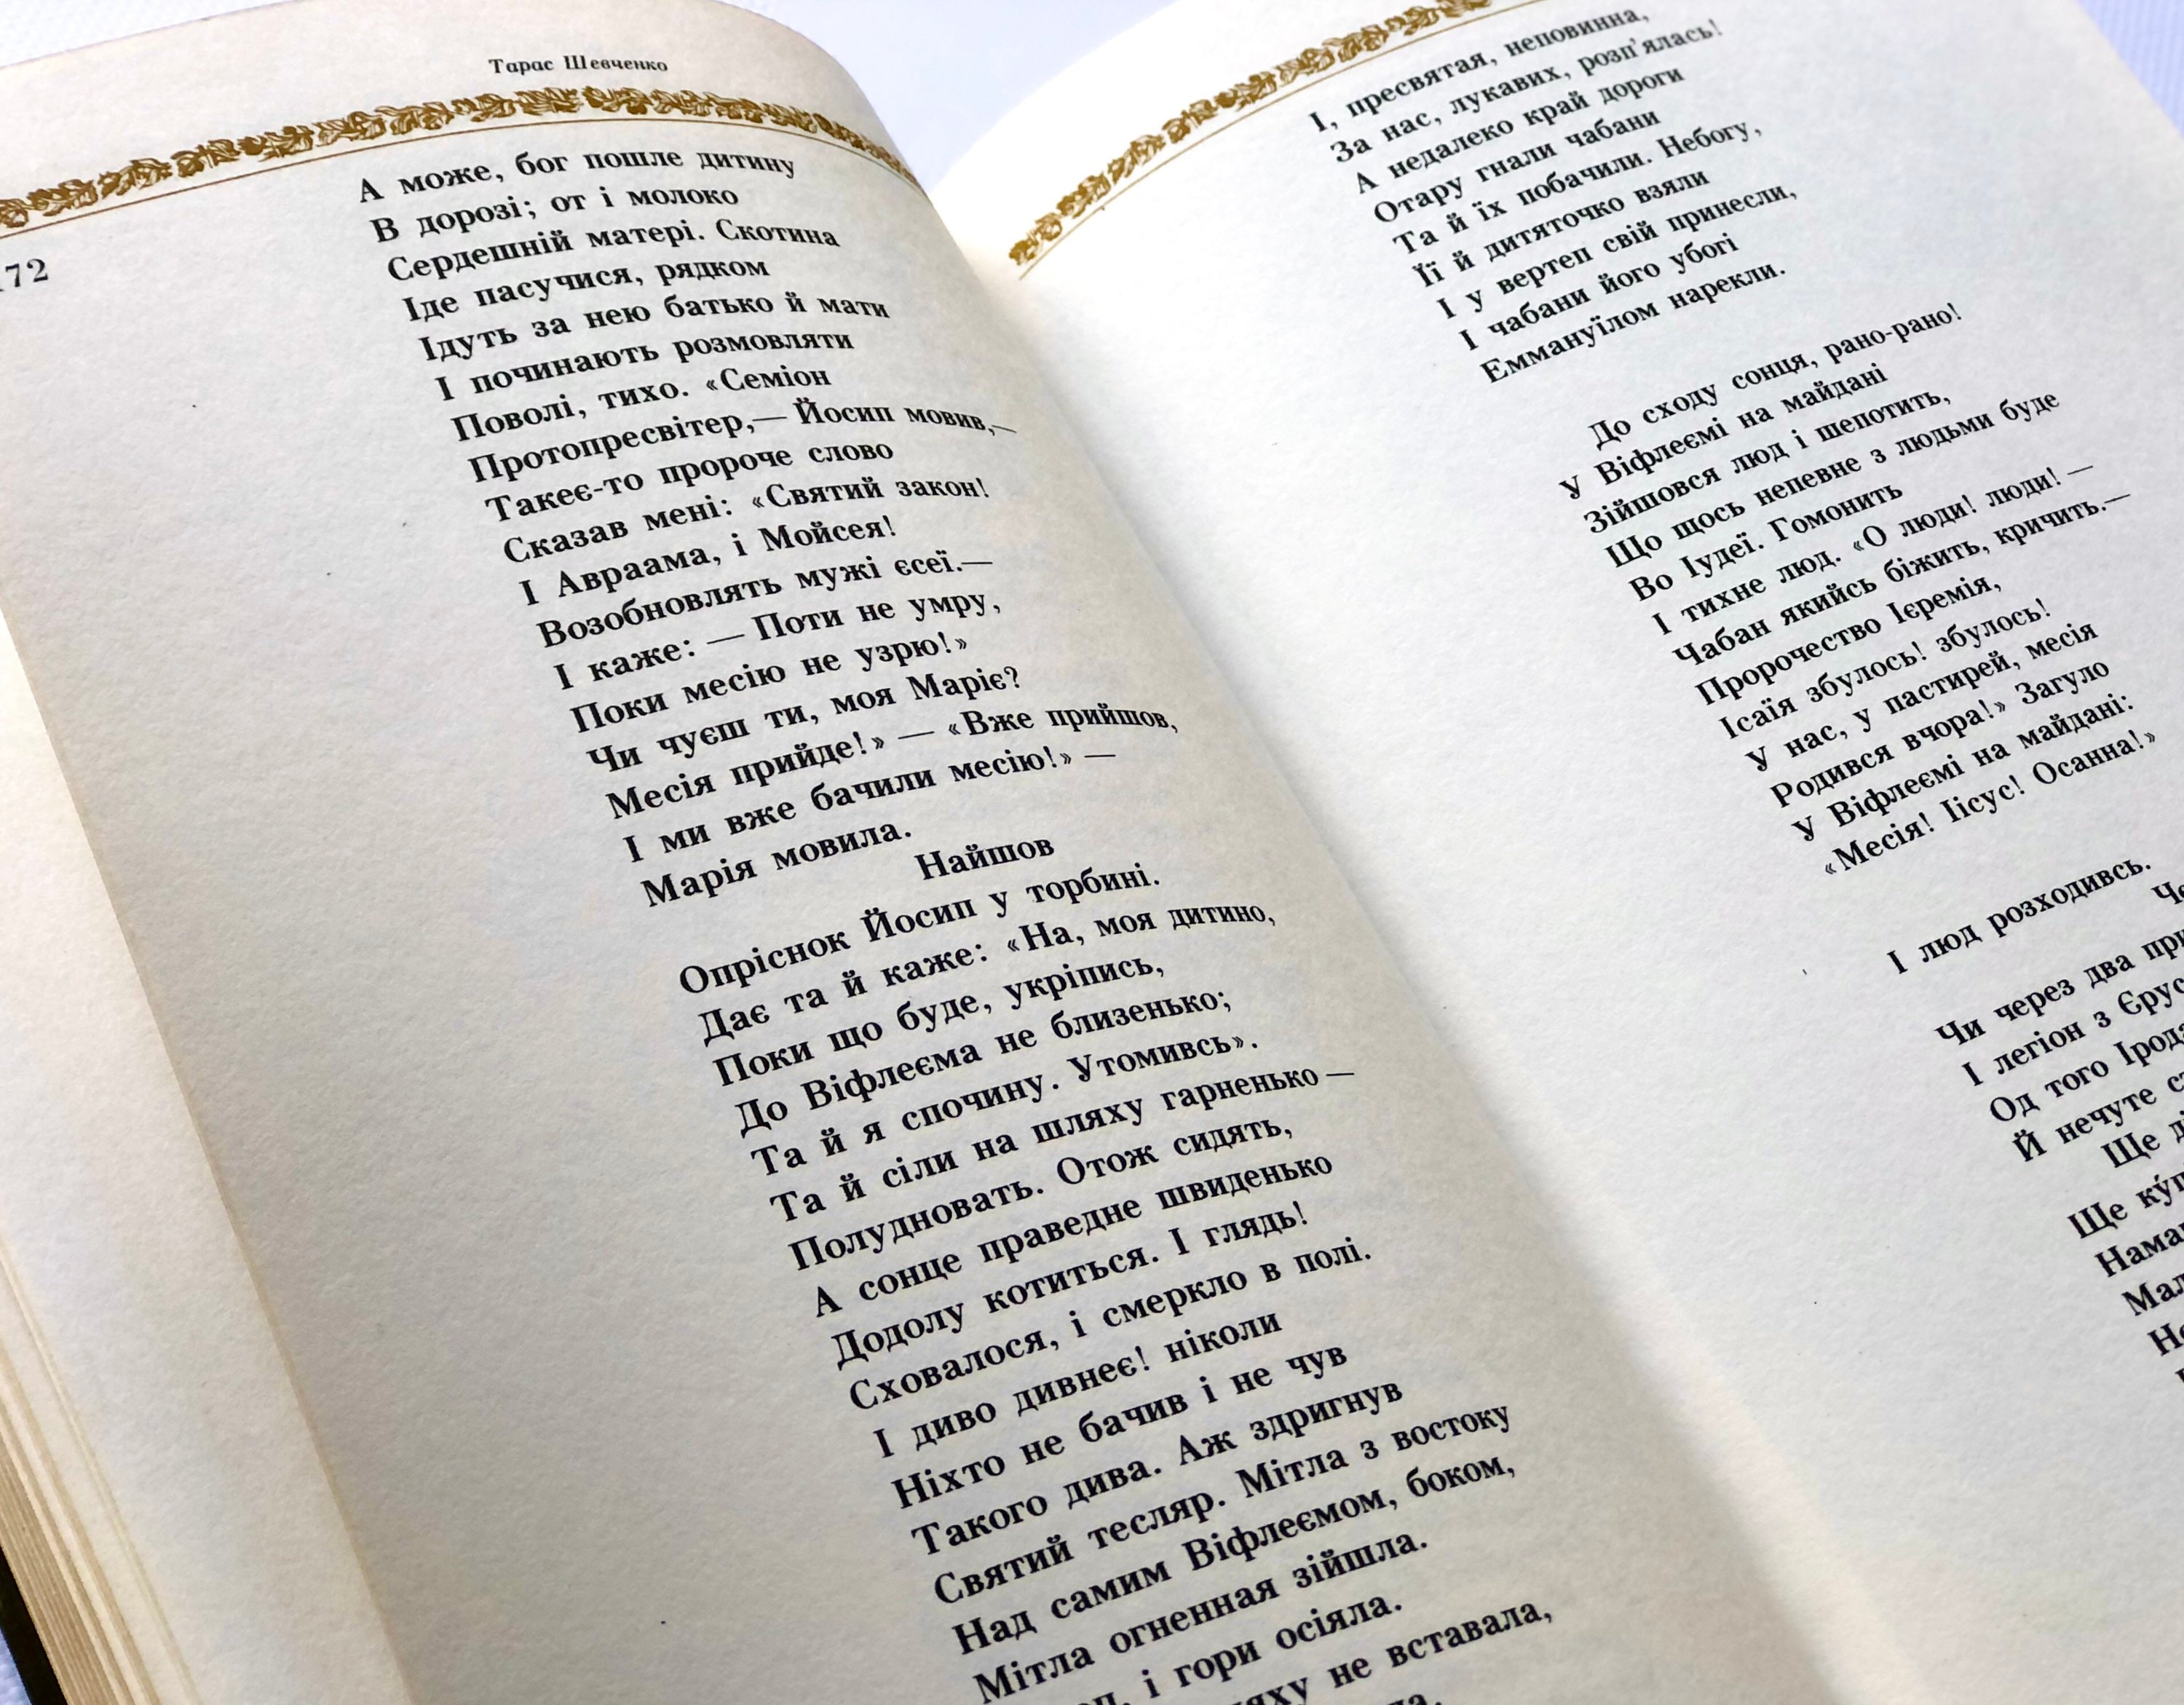 Тарас Шевченко
72
А може, бог пошле дитину
В дорозі; от і молоко
Сердешній матері. Скотина
Іде пасучися, рядком
Ідуть за нею батько й мати
І починають розмовляти
Поволі, тихо. «Семіон
Протопресвітер,— Йосип мовив,—
Такеє-то пророче слово
Сказав мені: «Святий закон!
І Авраама, і Мойсея!
Возобновлять мужі єсеї.—
І каже: — Поти не умру,
Поки месію не узрю!»
Чи чуєш ти, моя Маріє?
Месія прийде!» — «Вже прийшов,
І ми вже бачили месію!» —
Марія мовила.
Найшов
Опріснок Йосип у торбині.
Дає та й каже: «На, моя дитино,
Поки що буде, укріпись,
До Віфлеєма не близенько;
Та й я спочину. Утомивсь».
Та й сіли на шляху гарненько —
Полудновать. Отож сидять,
А сонце праведне швиденько
Додолу котиться. І глядь!
Сховалося, і смеркло в полі.
І диво дивнеє! ніколи
Ніхто не бачив і не чув
Такого дива. Аж здригнув
Святий тесляр. Мітла з востоку
Над самим Віфлеємом, боком,
Мітла огненная зійшла.
і гори осіяла.
не вставала,
І, пресвятая, неповинна,
За нас, лукавих, розп'ялась!
А недалеко край дороги
Отару гнали чабани
Та й їх побачили. Небогу,
Її й дитяточко взяли
І у вертеп свій принесли,
І чабани його убогі
Еммануїлом нарекли.
До сходу сонця, рано-рано!
У Віфлеємі на майдані
Зійшовся люд і шепотить,
Що щось непевне з людьми буде
Во Іудеї. Гомонить
І тихне люд. «О люди! люди! —
Чабан якийсь біжить, кричить.—
Пророчество Ієремія,
Ісаїя збулось! збулось!
У нас, у пастирей, месія
Родився вчора!» Загуло
У Віфлеємі на майдані:
«Месія! Іісус! Осанна!»
І люд розходивсь.
Чи через два
І легіон з
Од того
Й нечуте
Ще
Ще